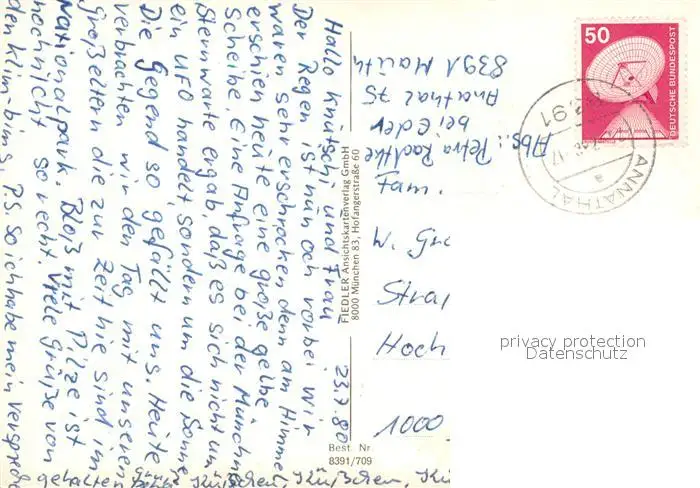 Hallo Knutschi und Frau 23.7.80
Der Regen ist nun doch vorbei Wir
waren sehr erschrocken denn am Himme
erschien heute eine große gelbe
Scheibe. Eine Anfrage bei der Münchn
Sternwarte ergab, daß es sich nicht um
ein UFO handelt, sondern um die Sonne
Die Gegend so gefällt uns. Heute
verbrachten wir den Tag mit unseren
Großeltern die zur Zeit hie sind im
Nationalpark. Bloß mit Pilze ist
noch nicht so recht. Viele Grüße von
den Klim-bims, P.S. So ich habe mein Verspreche
gehalten Küßchen, Küßchen, Kü
FIEDLER Ansichtskartenverlag GmbH
8000 München 83, Hofangerstraße 60
Best. Nr.
8391/709
Abs.: Petra Radtke
bei Eder
Anathal 75
8391 Mauth
W. Gr
Stra
Hoch
1000
50
DEUTSCHE BUNDESPOST
ANNATHAL
a
privacy protection
Datenschutz